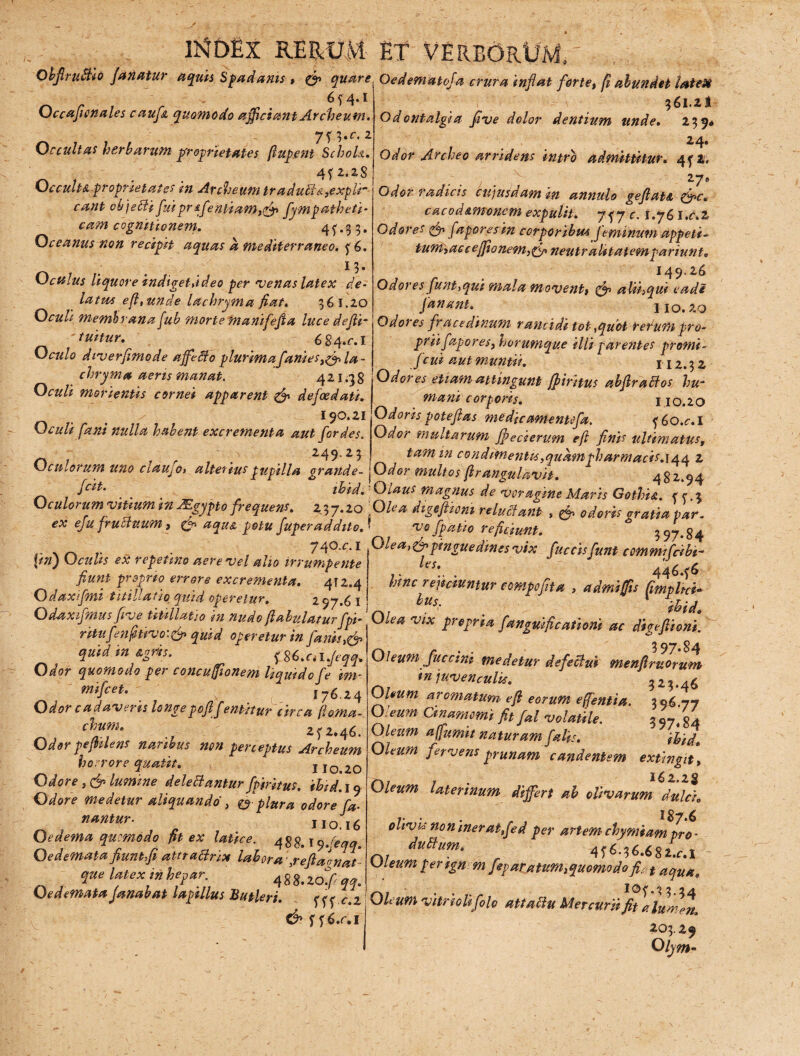 INDEX RERUM ET VERBORUM.
Obstructio sanatur aquis Spadanis, & quare
654.1
Occasionales causæ quomodo afficiant Archeum.
753.c.2
Occultas herbarum proprietates stupent Scholæ.
452.28
Occultæ proprietates in Archeum traductæ, expli-
cant objecti sui præsentiam, & sympatheti-
cam cognitionem. 45.33.
Oceanus non recipit aquas à mediterraneo. 56.
13.
Oculus liquore indiget, ideo per venas latex de-
latus est, unde lachryma fiat. 361.20
Oculi membrana sub morte manifesta luce desti-
tuitur. 684.c.1
Oculo diversimode affecto plurima sanies, & la-
chryma aeris manat. 421.38
Oculi morientis cornei apparent & defœdati.
190.21
Oculi sani nulla habent excrementa aut sordes.
249.23
Oculorum uno clauso, alterius pupilla grande-
scit. ibid.
Oculorum vitium in Ægypto frequens. 237.20
ex esu fructuum, & aquæ potu superaddito.
740.c.1
(in) Oculis ex repetino aere vel alio irrumpente
fiunt proprio errore excrementa. 412.4
Odaxismi titillatio quid operetur. 297.61
Odaxismus sive titillatio in nudo stabulatur spi-
ritu sensitivo: & quid operetur in sanis, &
quid in ægris. 586.c.1.seqq.
Odor quomodo per concussionem liquido se im-
misceat. 176.24
Odor cadaveris longe post sentitur circa stoma-
chum. 252.46.
Odor pestilens naribus non perceptus Archeum
horrore quatit. 110.20
Odore, & lumine delectantur spiritus. ibid.19
Odore medetur aliquando, & plura odore sa-
nantur. 110.16
Oedema quomodo fit ex latice. 488.19.seqq.
Oedemata fiunt, si attractrix labora, restagnat-
que latex in hepar. 488.20.seqq.
Oedemata sanabat lapillus Butleri. 555.c.2
& 556.c.1
Oedematosa crura inflat forte, si abundet latex
361.21
Odontalgia sive dolor dentium unde. 239.
24.
Odor Archeo arridens intrò admittitur. 452.
27.
Odor radicis cujusdam in annulo gestatæ &c.
cacodæmonem expulit. 757 c. 1.761.c.2
Odores & sapores in corporibus seminum appeti-
tum, accessionem, & neutralitatem pariunt.
149.26
Odores sunt, qui mala movent, & alii, qui eadē
sanant. 110.20
Odores fracedinum rancidi tot, quot rerum pro-
prii sapores, horumque illi parentes promi-
scui aut muntii. 112.32
Odores etiam attingunt spiritus abstractos hu-
mani corporis. 110.20
Odoris potestas medicamentosa. 560.c.1
Odor multarum specierum est finis ultimatus,
tam in condimentis, quàm pharmacis. 144 2
Odor multos strangulavit. 482.94
Olaus magnus de voragine Maris Gothiæ. 55.3
Olea digestioni reluctant, & odoris gratia par-
vo spatio reficiunt. 397.84
Olea, & pinguedines vix succis sunt commiscibi-
les. 446.56
hinc rejiciuntur composita, admissis simplici-
bus. ibid.
Olea vix propria sanguificationi ac digestioni.
397.84
Oleum succini medetur defectui menstruorum
in juvenculis. 323.46
Oleum aromatum est eorum essentia. 396.77
Oleum Cinamomi fit sal volatile. 397.84
Oleum assumit naturam salis. ibid.
Oleum fervens prunam candentem extingit,
162.28
Oleum laterinum differt ab olivarum dulci.
187.6
olivis non inerat, sed per artem chymiam pro-
ductum. 456.36.682.c.1
Oleum per ignem separatum, quomodo fiat aqua.
105.33.34
Oleum vitrioli solo attactu Mercurii fit alumen.
203.29
Olym-